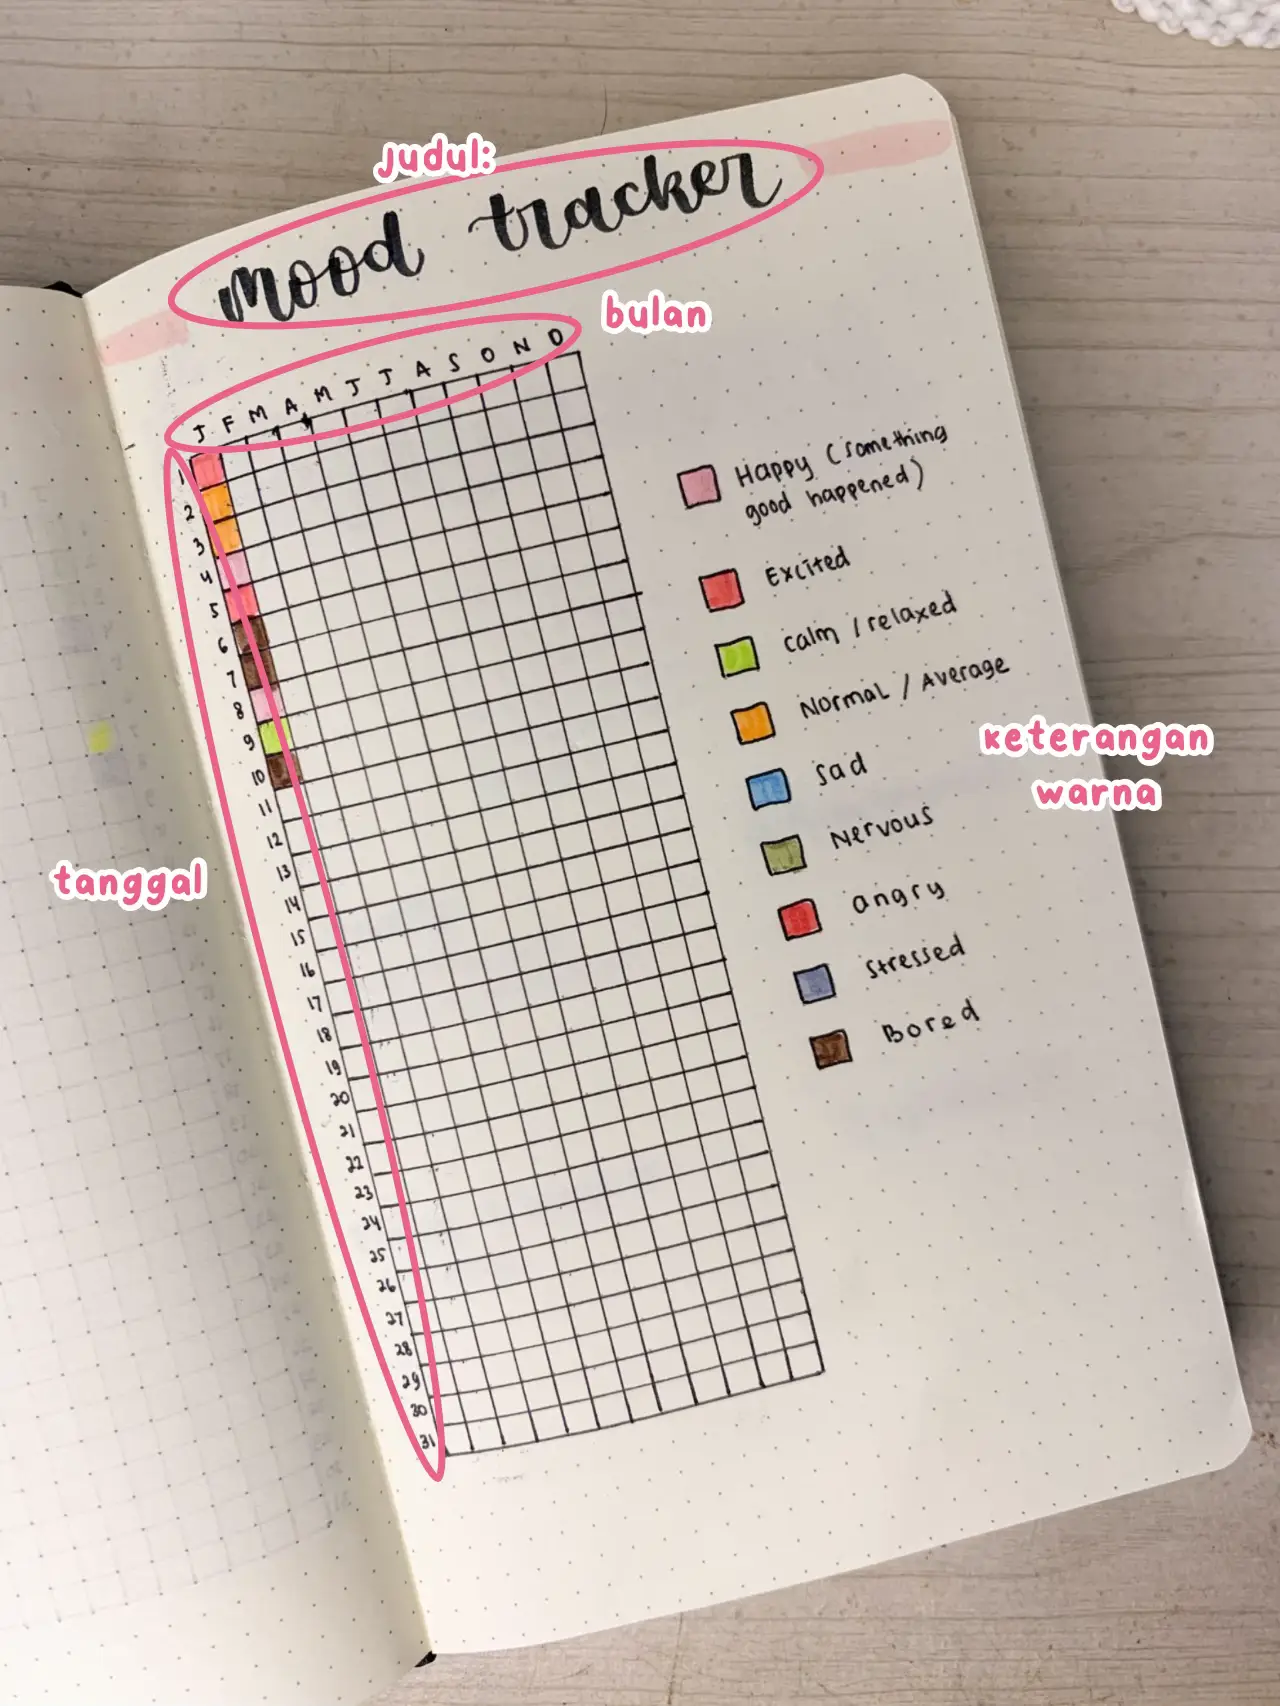 judul:
mood tracker
bulan
J F M A M J J A S O N D
1
2
3
4
5
6
7
8
9
10
11
12
13
14
15
16
17
18
19
20
21
22
23
24
25
26
27
28
29
30
31
tanggal
Happy (something
good happened)
Excited
calm / relaxed
Normal / Average
sad
Nervous
angry
stressed
Bored
keterangan
warna